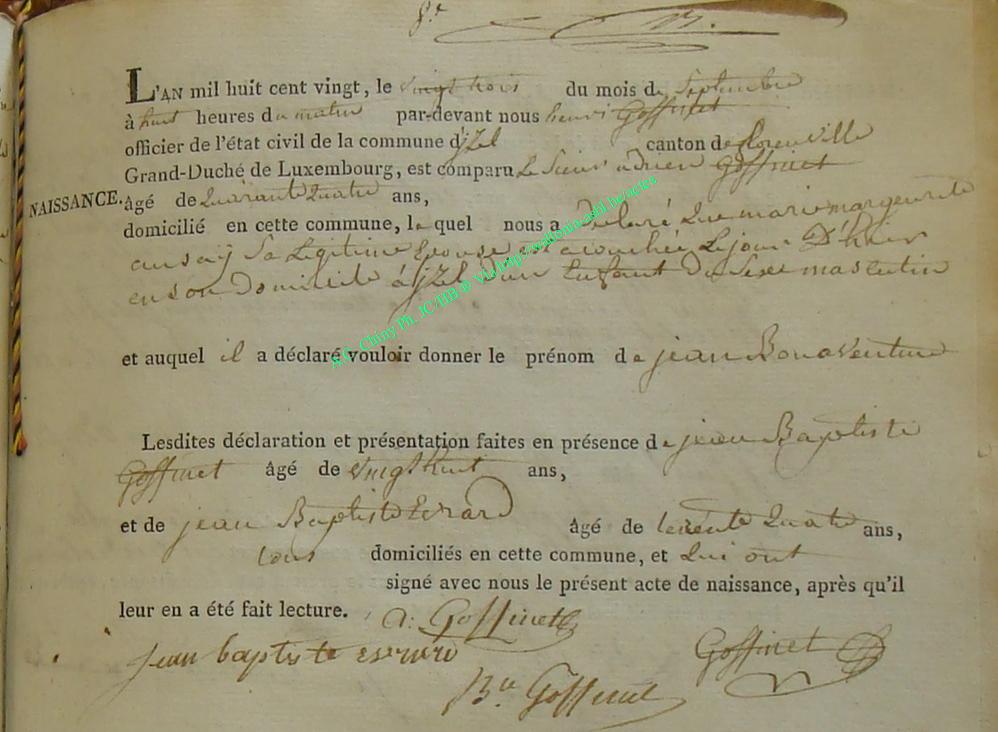 L'AN mil huit cent vingt, le vingt trois du mois de Septembre
à huit heures du matin par-devant nous henri Goffinet
officier de l'état civil de la commune d'jzel canton de florenville
Grand-Duché de Luxembourg, est comparu Le Sieur adrien Goffinet
NAISSANCE. âgé de Quarante Quatre ans,
domicilié en cette commune, le quel nous a déclaré Que marie margeuritte
ausay Sa Legitime Epouse est acouchée Le jour D'hier
en son domicile à jzel D'un Enfant du Sexe masculin
et auquel il a déclaré vouloir donner le prénom de jean Bonaventure
Lesdites déclaration et présentation faites en présence de jean Baptiste
Goffinet âgé de vingt huit ans,
et de jean Baptiste Evrard âgé de trente Quatre ans,
tous domiciliés en cette commune, et Qui ont
signé avec nous le présent acte de naissance, après qu'il
leur en a été fait lecture. A: Goffinet
jean baptiste evrard Goffinet
Bte Goffinet
A.G. Chiny Ph. JC/HB @ Via